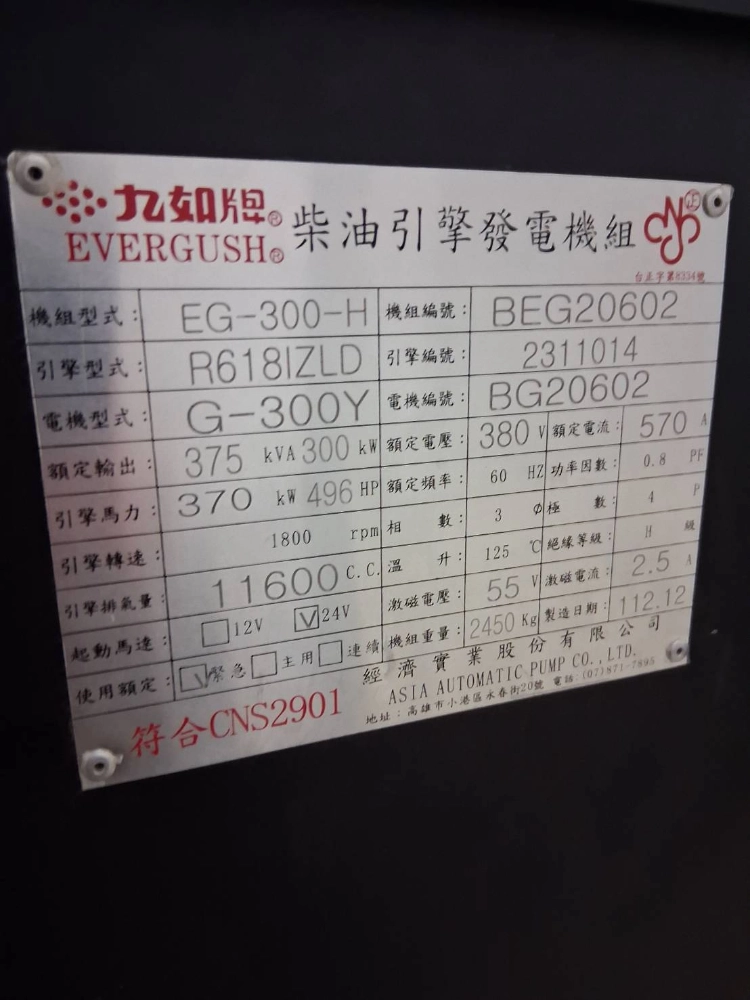 九如牌® 柴油引擎發電機組 正
EVERGUSH®
台正字第8334號
機組型式: EG-300-H 機組編號: BEG20602
引擎型式: R618IZLD 引擎編號: 2311014
電機型式: G-300Y 電機編號: BG20602
額定輸出: 375 kVA 300 kW 額定電壓: 380 V 額定電流: 570 A
引擎馬力: 370 kW 496 HP 額定頻率: 60 HZ 功率因數: 0.8 PF
引擎轉速: 1800 rpm 相數: 3 Ø 極數: 4 P
引擎排氣量: 11600 C.C. 溫升: 125 ℃ 絕緣等級: H 級
起動馬達: □12V ☑24V 激磁電壓: 55 V 激磁電流: 2.5 A
使用額定: ☑緊急 □主用 □連續 機組重量: 2450 Kg 製造日期: 112.12
符合CNS2901
經濟實業股份有限公司
ASIA AUTOMATIC PUMP CO., LTD.
地址:高雄市小港區永春街20號 電話:(07)871-7895